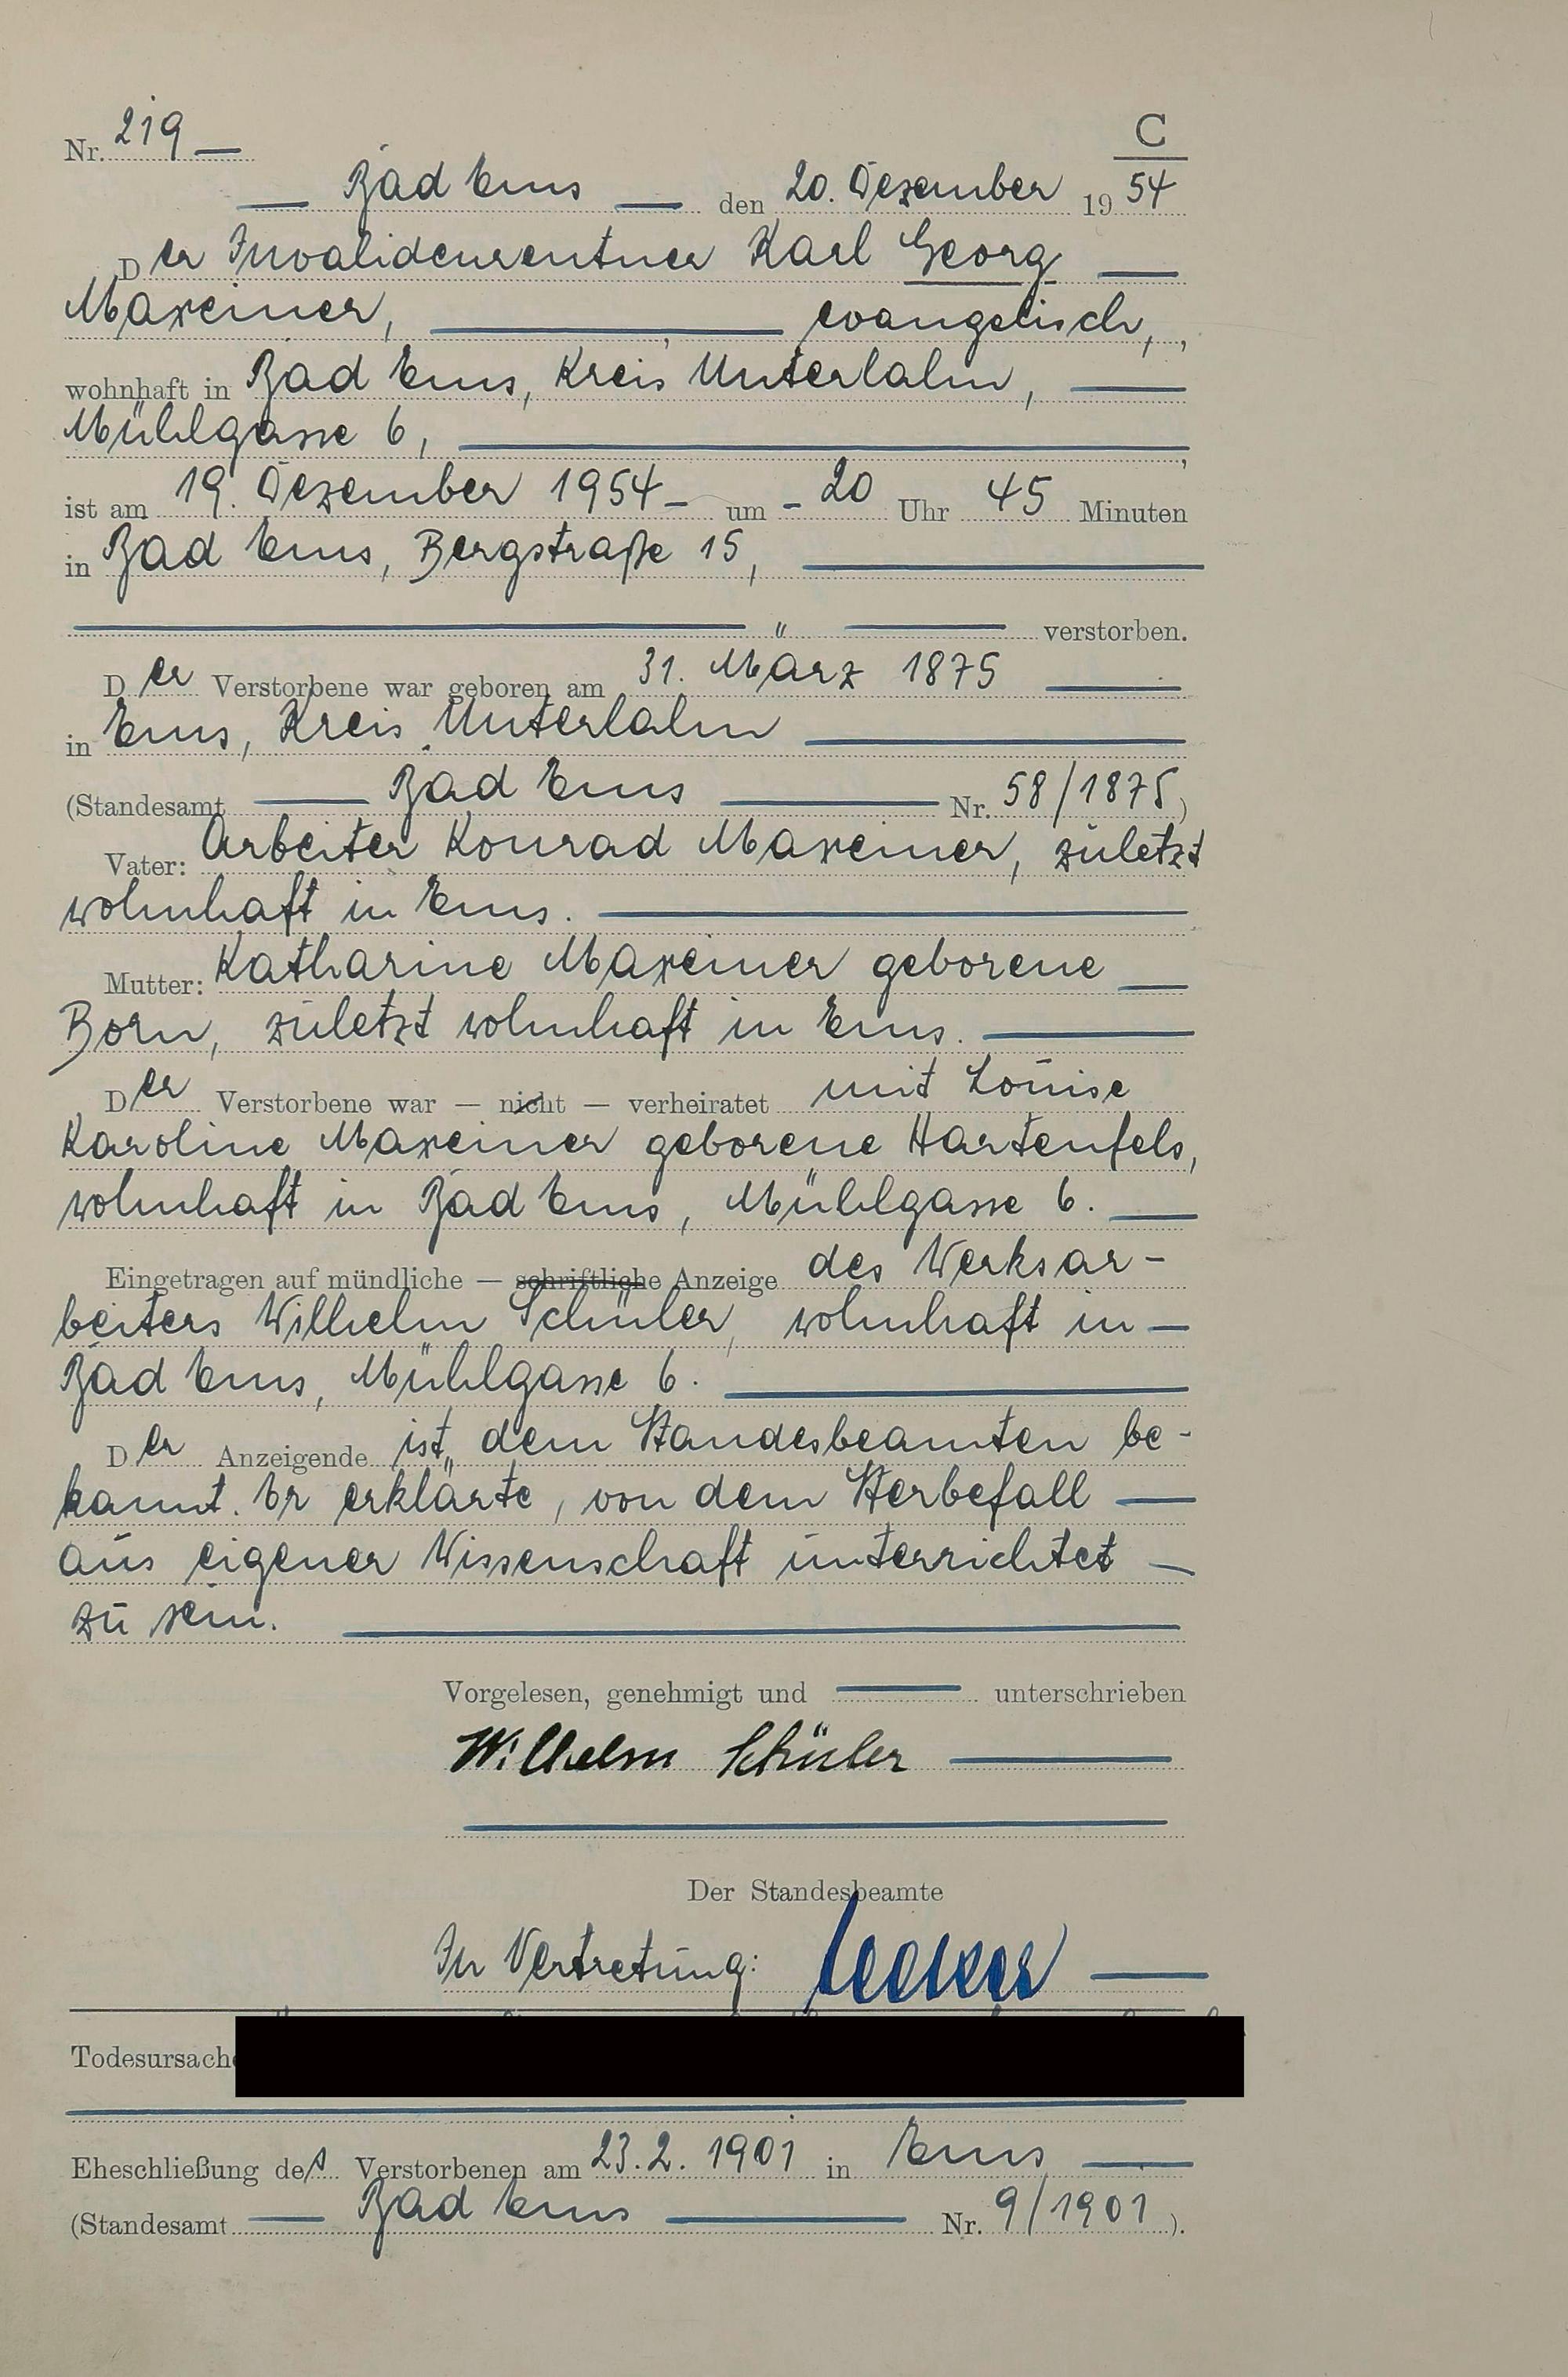 Nr. 219 C
Bad Ems den 20. Dezember 19 54
Der Invalidenrentner Karl Georg
Maxeiner, evangelisch,
wohnhaft in Bad Ems, Kreis Unterlahn,
Mühlgasse 6,
ist am 19. Dezember 1954 um 20 Uhr 45 Minuten
in Bad Ems, Bergstraße 15,
verstorben.
Der Verstorbene war geboren am 31. März 1875
in Ems, Kreis Unterlahn
(Standesamt Bad Ems Nr. 58/1875)
Vater: Arbeiter Konrad Maxeiner, zuletzt
wohnhaft in Ems.
Mutter: Katharine Maxeiner geborene
Born, zuletzt wohnhaft in Ems.
Der Verstorbene war — nicht — verheiratet mit Louise
Karoline Maxeiner geborene Hartenfels,
wohnhaft in Bad Ems, Mühlgasse 6.
Eingetragen auf mündliche — schriftliche Anzeige des Werksar-
beiters Wilhelm Schüler, wohnhaft in
Bad Ems, Mühlgasse 6.
Der Anzeigende ist dem Standesbeamten be-
kannt. Er erklärte, von dem Sterbefall
aus eigener Wissenschaft unterrichtet
zu sein.
Vorgelesen, genehmigt und unterschrieben
Wilhelm Schüler
Der Standesbeamte
In Vertretung:
Todesursache
Eheschließung des Verstorbenen am 23.2.1901 in Ems
(Standesamt Bad Ems Nr. 9/1901).